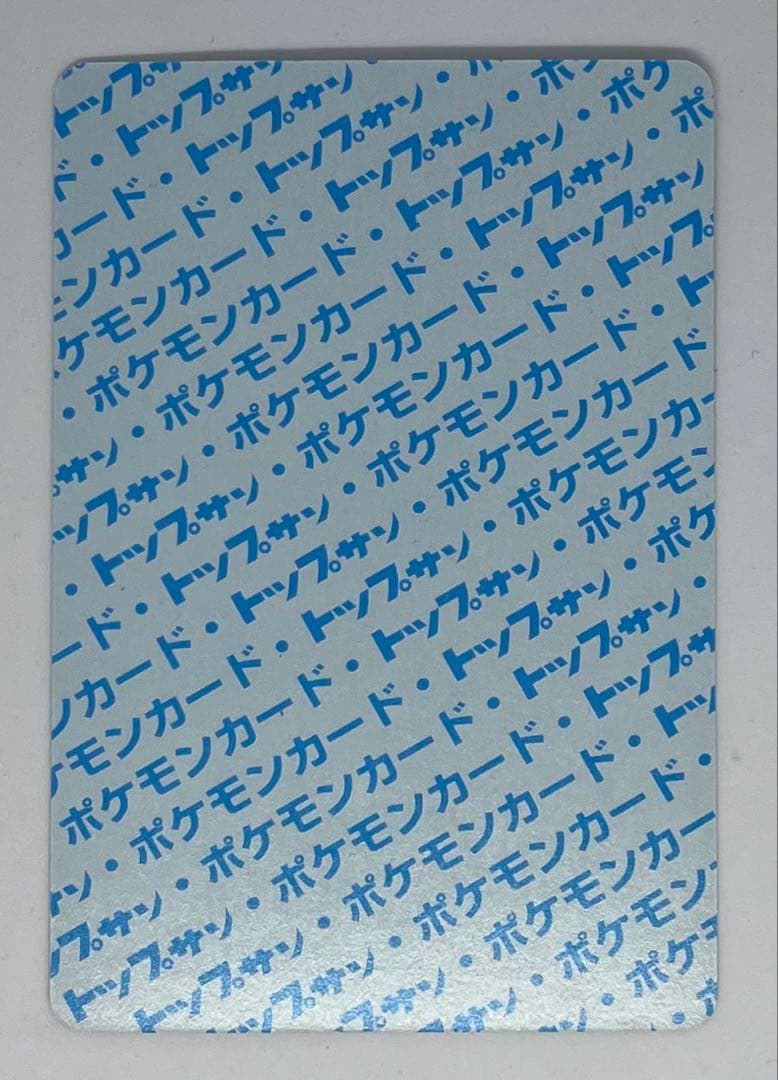 トップ
・トップサ
ード・トップサン
ンカード・トップサン・
ケモンカード・トップサン・ポ
・ポケモンカード・トップサン・ポケ
サン・ポケモンカード・トップサン・ポ
ップサン・ポケモンカード・トップサン
・トップサン・ポケモンカード・トップ
ード・トップサン・ポケモンカード・ト
ンカード・トップサン・ポケモンカード
ケモンカード・トップサン・ポケモンカー
ポケモンカード・トップサン・ポケモン
サン・ポケモンカード・トップサン・ポケ
プサン・ポケモンカード・トップサン・
トップサン・ポケモンカード・トップサ
トップサン・ポケモンカード・トッ
トップサン・ポケモンカード・
プサン・ポケモンカー
サン・ポケモン
・ポケ